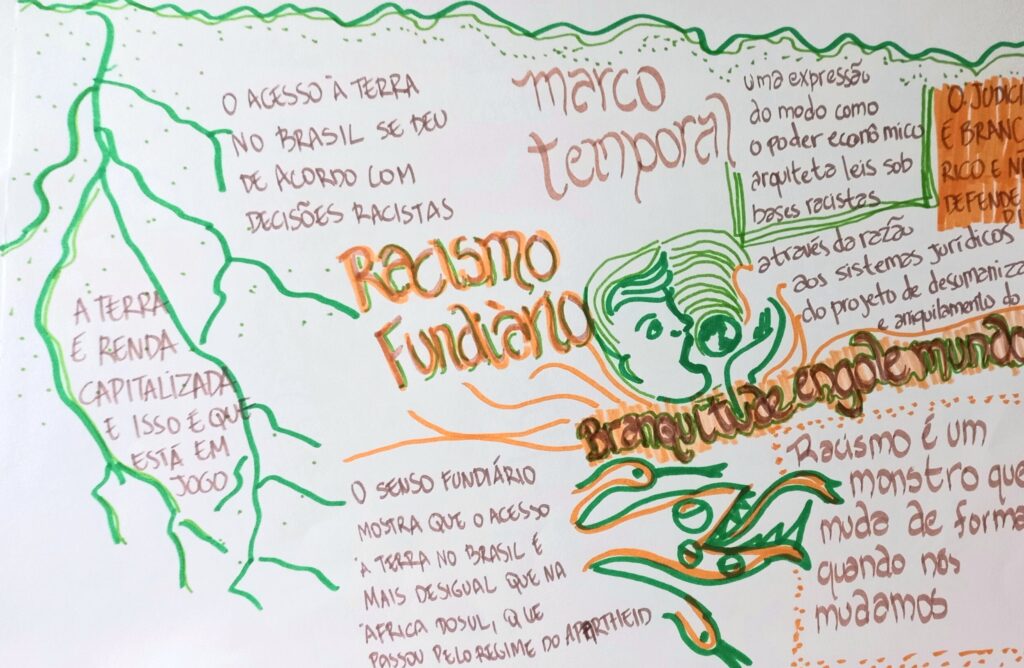 O ACESSO À TERRA
NO BRASIL SE DEU
DE ACORDO COM
DECISÕES RACISTAS
marco
temporal
uma expressão
do modo como
o poder econômico
arquiteta leis sob
bases racistas
O JUDICI
É BRANC
RICO E N
DEFENDE
através da razão
aos sistemas jurídicos
do projeto de desumaniza
e aniquilamento do
Racismo
Fundiàrio
A TERRA
É RENDA
CAPITALIZADA
E ISSO É QUE
ESTÁ EM
JOGO
Branquitude engole mundo
O SENSO FUNDIÁRIO
MOSTRA QUE O ACESSO
À TERRA NO BRASIL É
MAIS DESIGUAL QUE NA
ÁFRICA DO SUL, QUE
PASSOU PELO REGIME DO APARTHEID
Racismo é um
monstro que
muda de forma
quando nós
mudamos